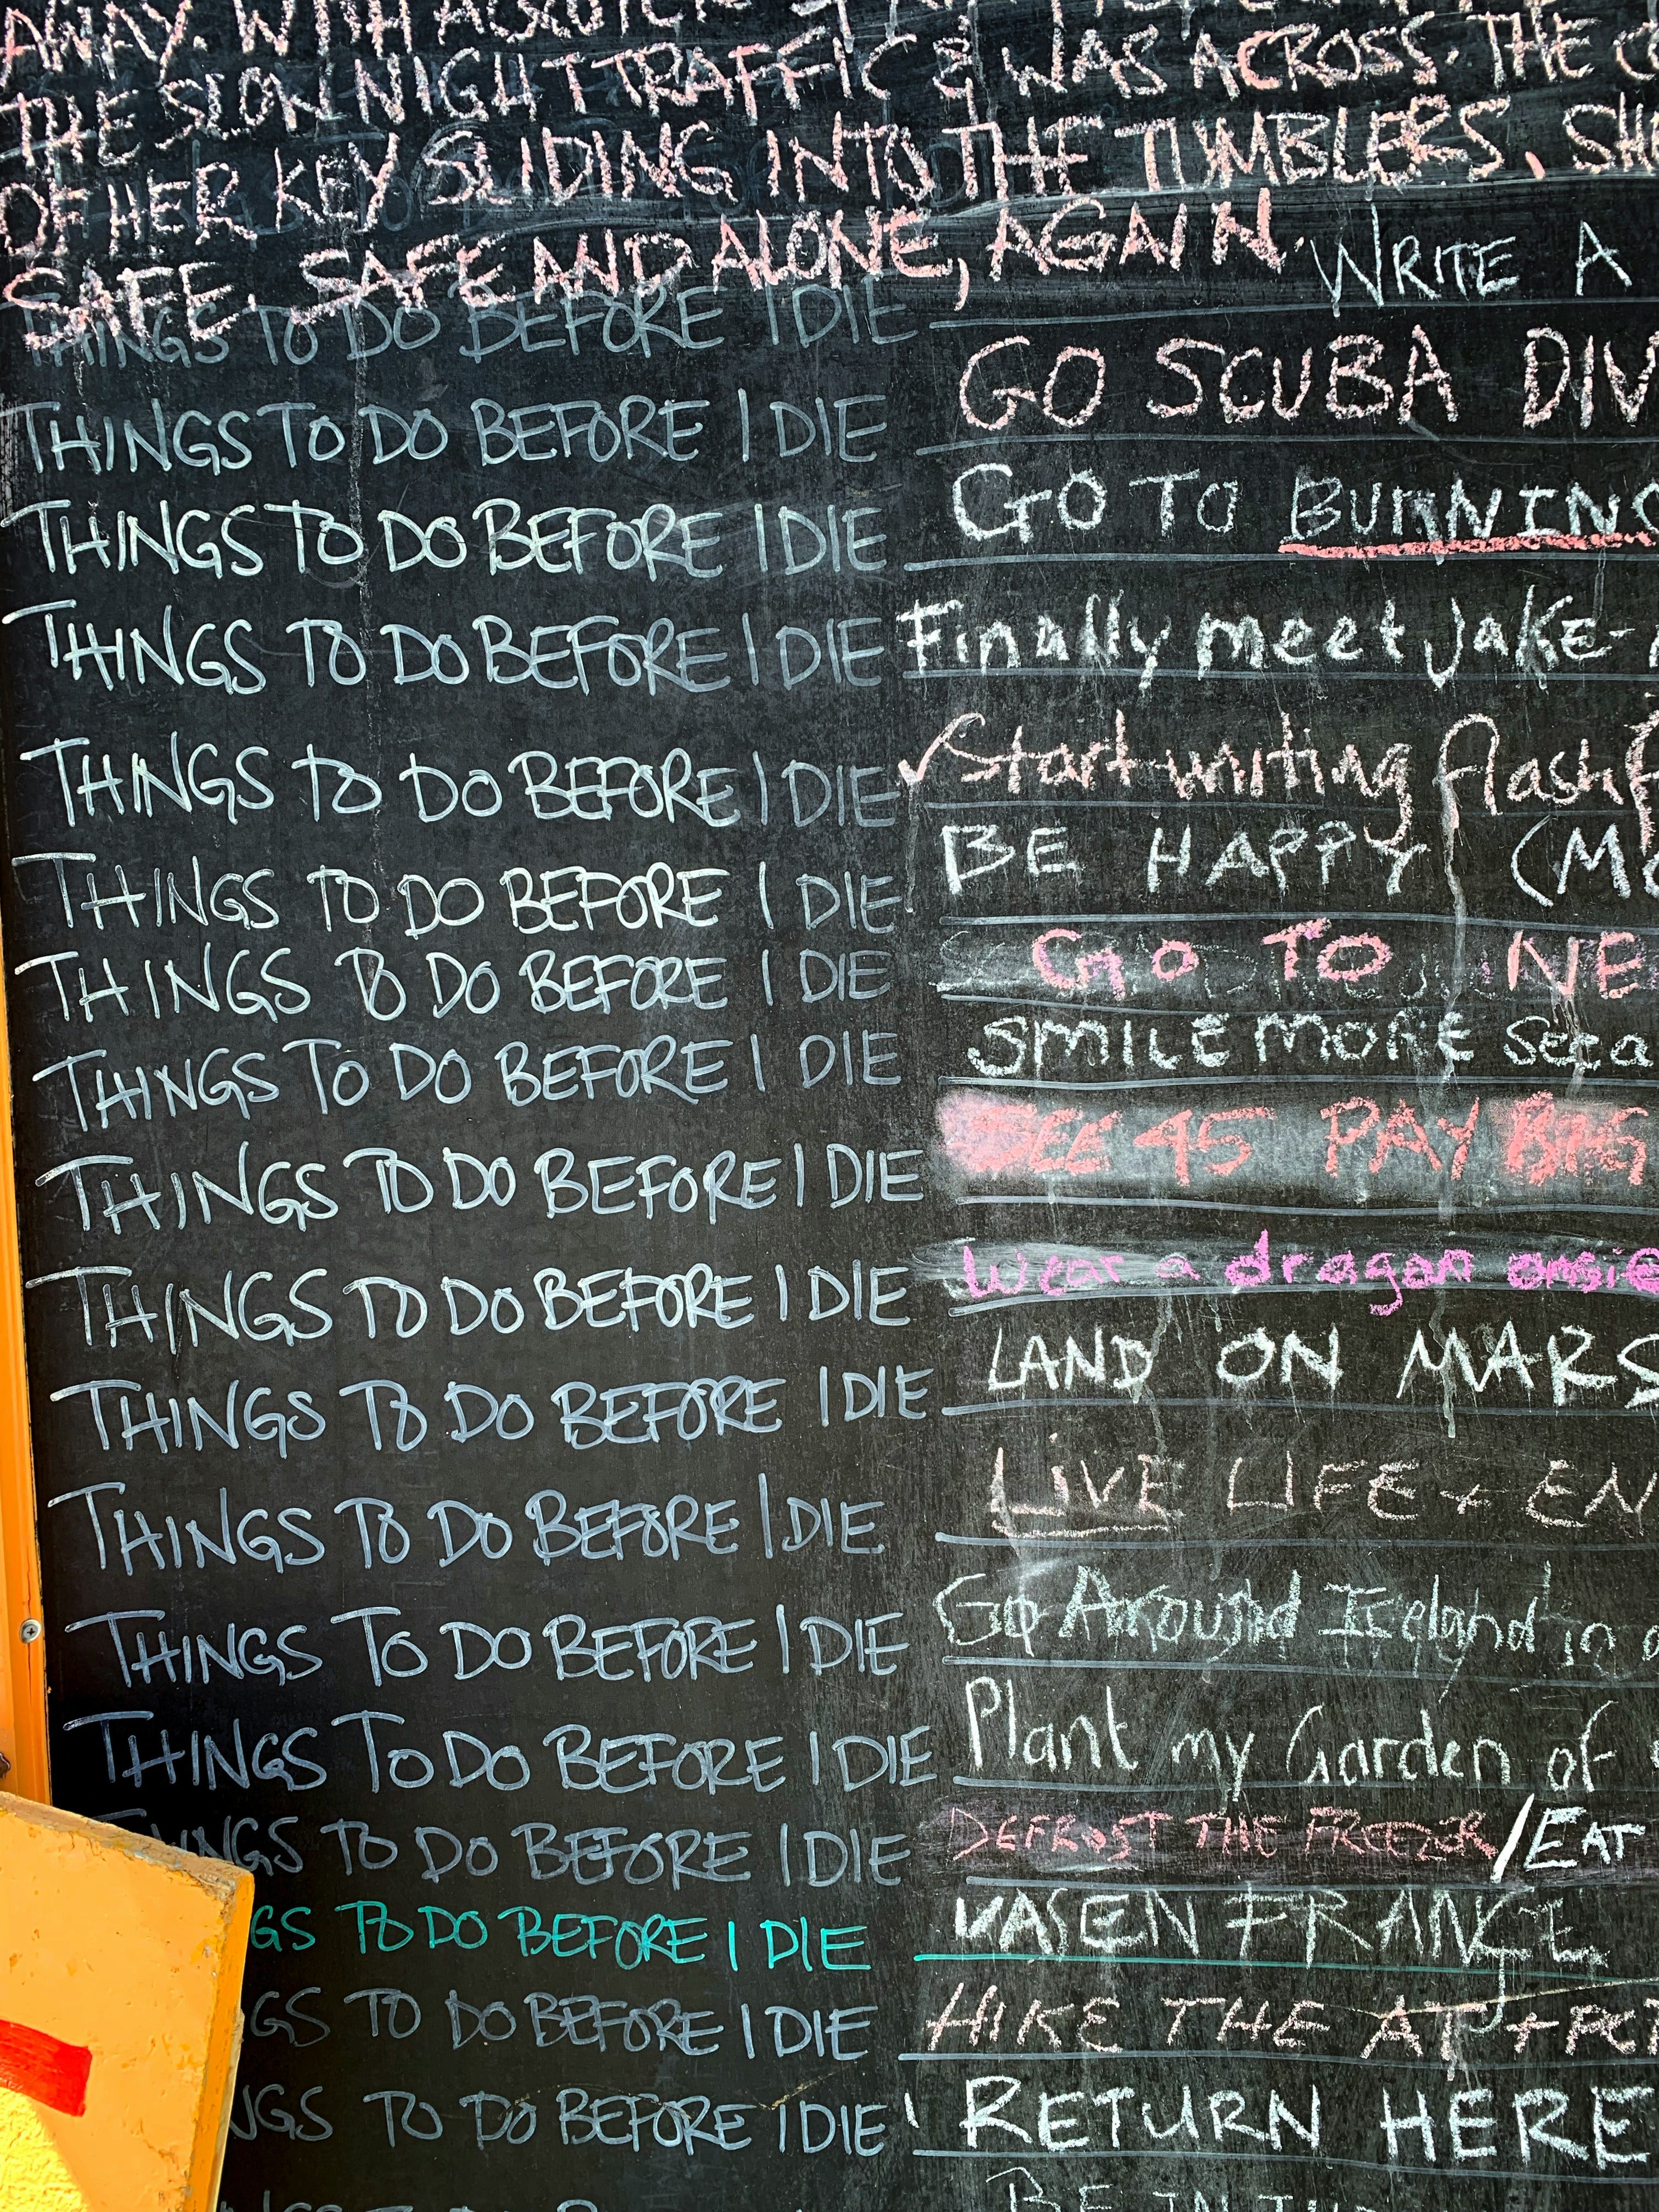 AWAY. WITH A
THE SLOW NIGHT TRAFFIC & WAS ACROSS. THE
OF HER KEY SLIDING INTO THE TUMBLERS. SH
SAFE. SAFE AND ALONE, AGAIN.
THINGS TO DO BEFORE I DIE WRITE A
THINGS TO DO BEFORE I DIE GO SCUBA DIV
THINGS TO DO BEFORE I DIE GO TO BURNING
THINGS TO DO BEFORE I DIE Finally meet Jake-
THINGS TO DO BEFORE I DIE Start writing flash f
THINGS TO DO BEFORE I DIE BE HAPPY (MO
THINGS TO DO BEFORE I DIE GO TO NE
THINGS TO DO BEFORE I DIE SMILE MORE
THINGS TO DO BEFORE I DIE SEE 45 PAY BIG
THINGS TO DO BEFORE I DIE Wear a dragon onsie
THINGS TO DO BEFORE I DIE LAND ON MARS
THINGS TO DO BEFORE I DIE LIVE LIFE + EN
THINGS TO DO BEFORE I DIE Go Around Iceland in
THINGS TO DO BEFORE I DIE Plant my Garden of
NGS TO DO BEFORE I DIE DEFROST THE FREEZER /EAT
GS TO DO BEFORE I DIE FRANCE
GS TO DO BEFORE I DIE HIKE THE AT + PCT
NGS TO DO BEFORE I DIE RETURN HERE
BE IN